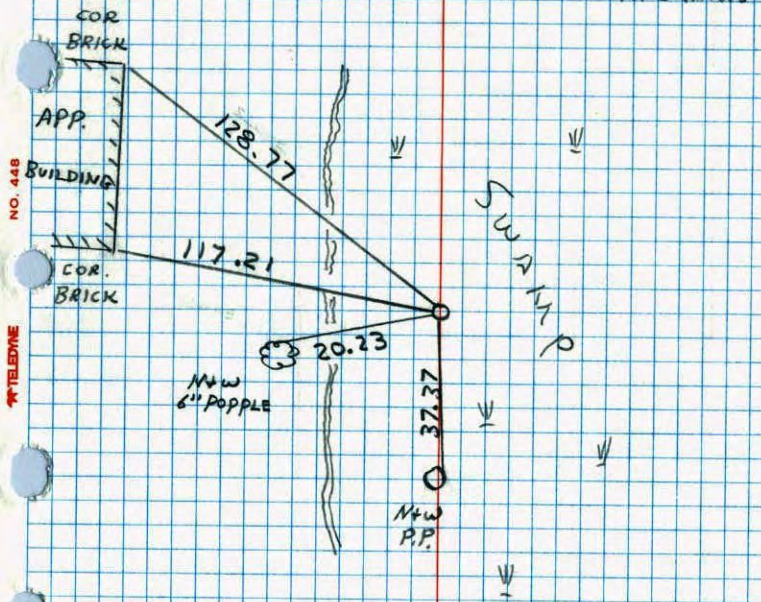 COR
BRICK
APP.
BUILDING
COR.
BRICK
128.77
117.21
20.23
37.37
N+W
6" POPPLE
N+W
P.P.
SWAMP
NO. 448
TELEDYNE